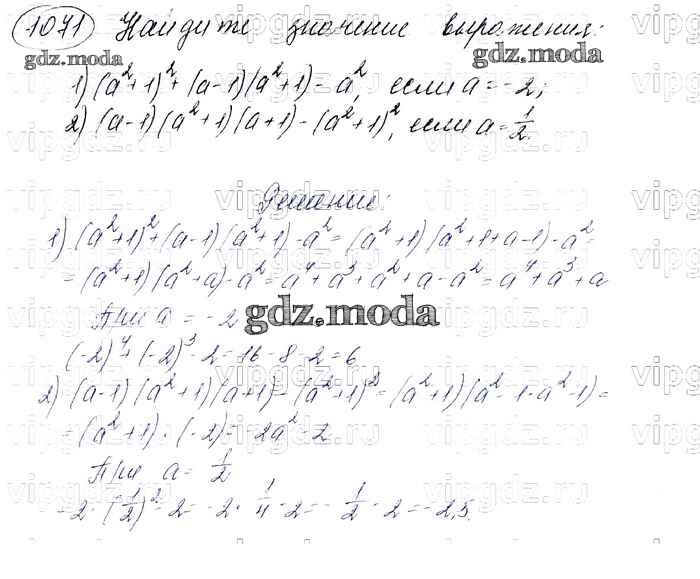 1071 Найдите значение выражения:
1) (a²+1)² + (a-1)(a²+1) - a², если a = -2;
2) (a-1)(a²+1)(a+1) - (a²+1)², если a = 1/2.
Решение:
1) (a²+1)²+(a-1)(a²+1)-a² = (a²+1)(a²+1+a-1)-a² =
= (a²+1)(a²+a)-a² = a⁴+a³+a²+a-a² = a⁴+a³+a
При a = -2
gdz.moda
(-2)⁴+(-2)³-2=16-8-2=6
2) (a-1)(a²+1)(a+1)-(a²+1)² = (a²+1)(a²-1-a²-1) =
= (a²+1)·(-2) = -2a²-2
При a = 1/2
-2·(1/2)²-2 = -2·1/4-2 = -1/2-2 = -2,5.